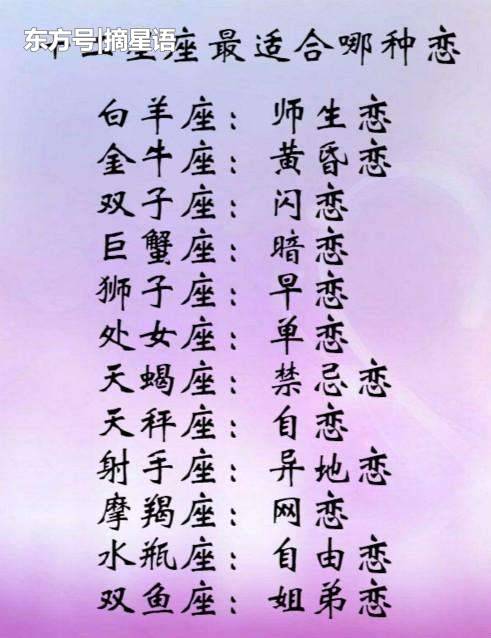 东方号|摘星语
星座最适合哪种恋
白羊座：师生恋
金牛座：黄昏恋
双子座：闪恋
巨蟹座：暗恋
狮子座：早恋
处女座：单恋
天蝎座：禁忌恋
天秤座：自恋
射手座：异地恋
摩羯座：网恋
水瓶座：自由恋
双鱼座：姐弟恋